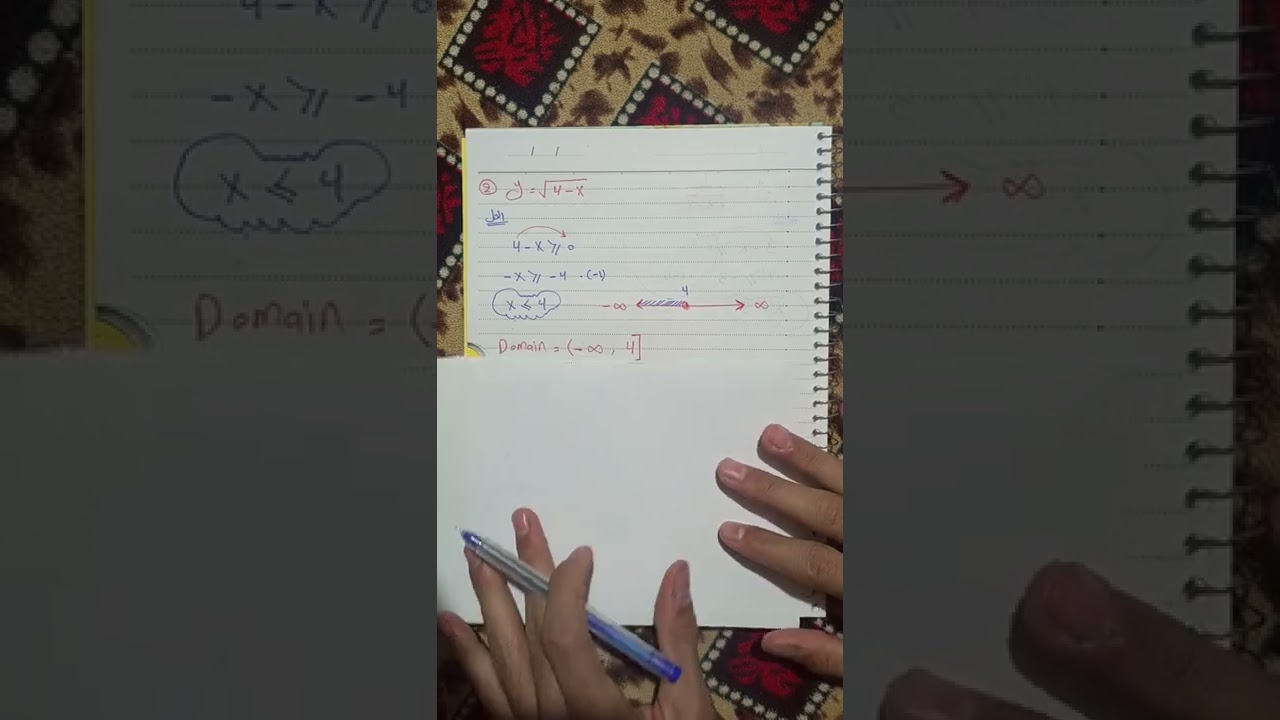 ② y = √4-x
4 - x ≥ 0
-x ≥ -4 ·(-1)
x ≤ 4
4
-∞ ∞
Domain = (-∞, 4]